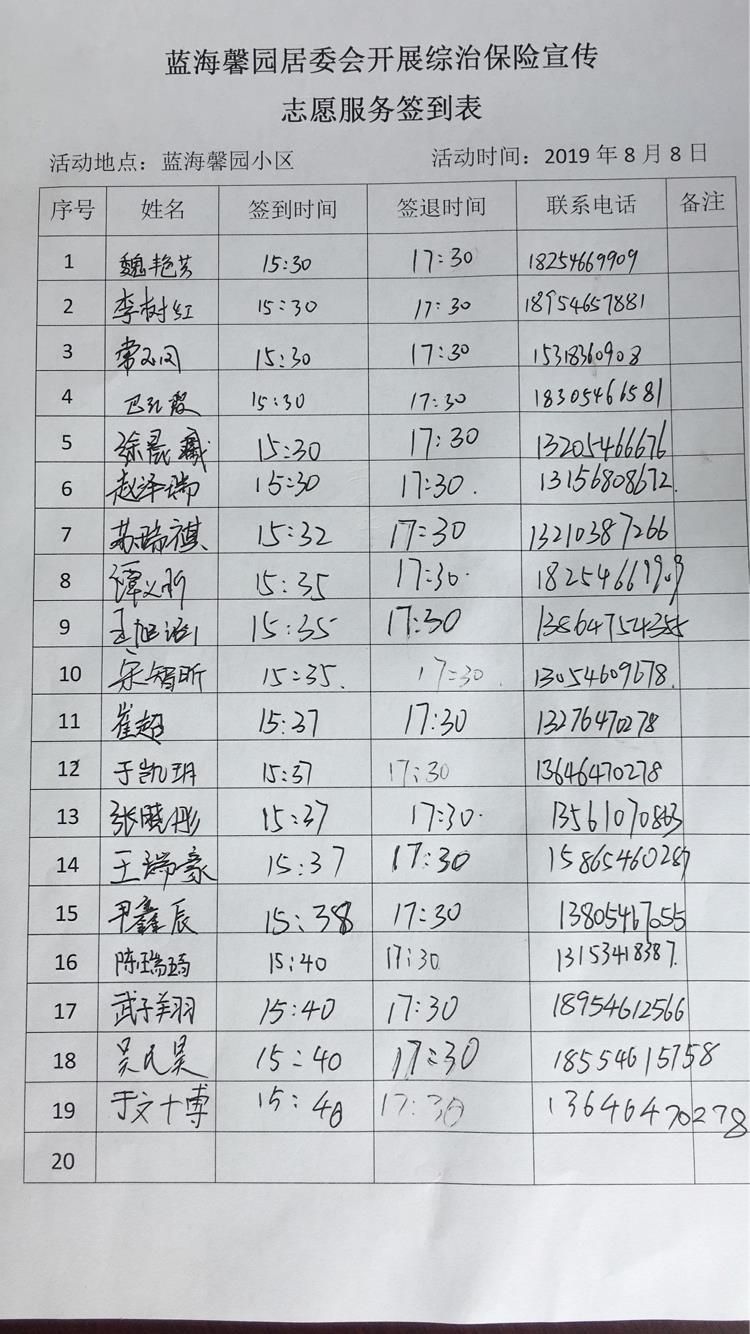 蓝海馨园居委会开展综治保险宣传
志愿服务签到表
活动地点：蓝海馨园小区 活动时间：2019 年 8 月 8 日
序号 姓名 签到时间 签退时间 联系电话 备注
1 魏艳芳 15:30 17:30 18254669909
2 李树红 15:30 17:30 18954657881
3 15:30 17:30 15318360908
4 15:30 17:30 18305466581
5 15:30 17:30 13205466676
6 赵泽瑞 15:30 17:30. 13156808672.
7 苏瑞祺 15:32 17:30 13210387266
8 谭义昕 15:35 17:30. 18254669909
9 15:35 17:30 13864754385
10 宋智昕 15:35. 17:30. 13054609678.
11 崔超 15:37 17:30 13276470278
12 于凯玥 15:37 17:30 13646470278
13 张晓彤 15:37 17:30. 13561070863
14 王瑞豪 15:37 17:30 15865460287
15 尹鑫辰 15:38 17:30 13805467055
16 15:40 17:30 13153418387.
17 武子翔 15:40 17:30 18954612566
18 吴民昊 15:40 17:30 18554615758
19 于文博 15:40 17:30 13646470278
20